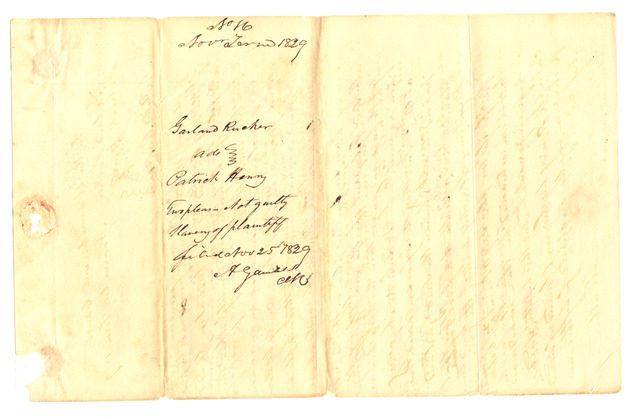 No 16
Novr Term 1829
Garland Rucker
ads
Patrick Henry
Two pleas Not guilty
Slavery of plaintiff
filed Nov 25th 1829
A Gamble
Clk